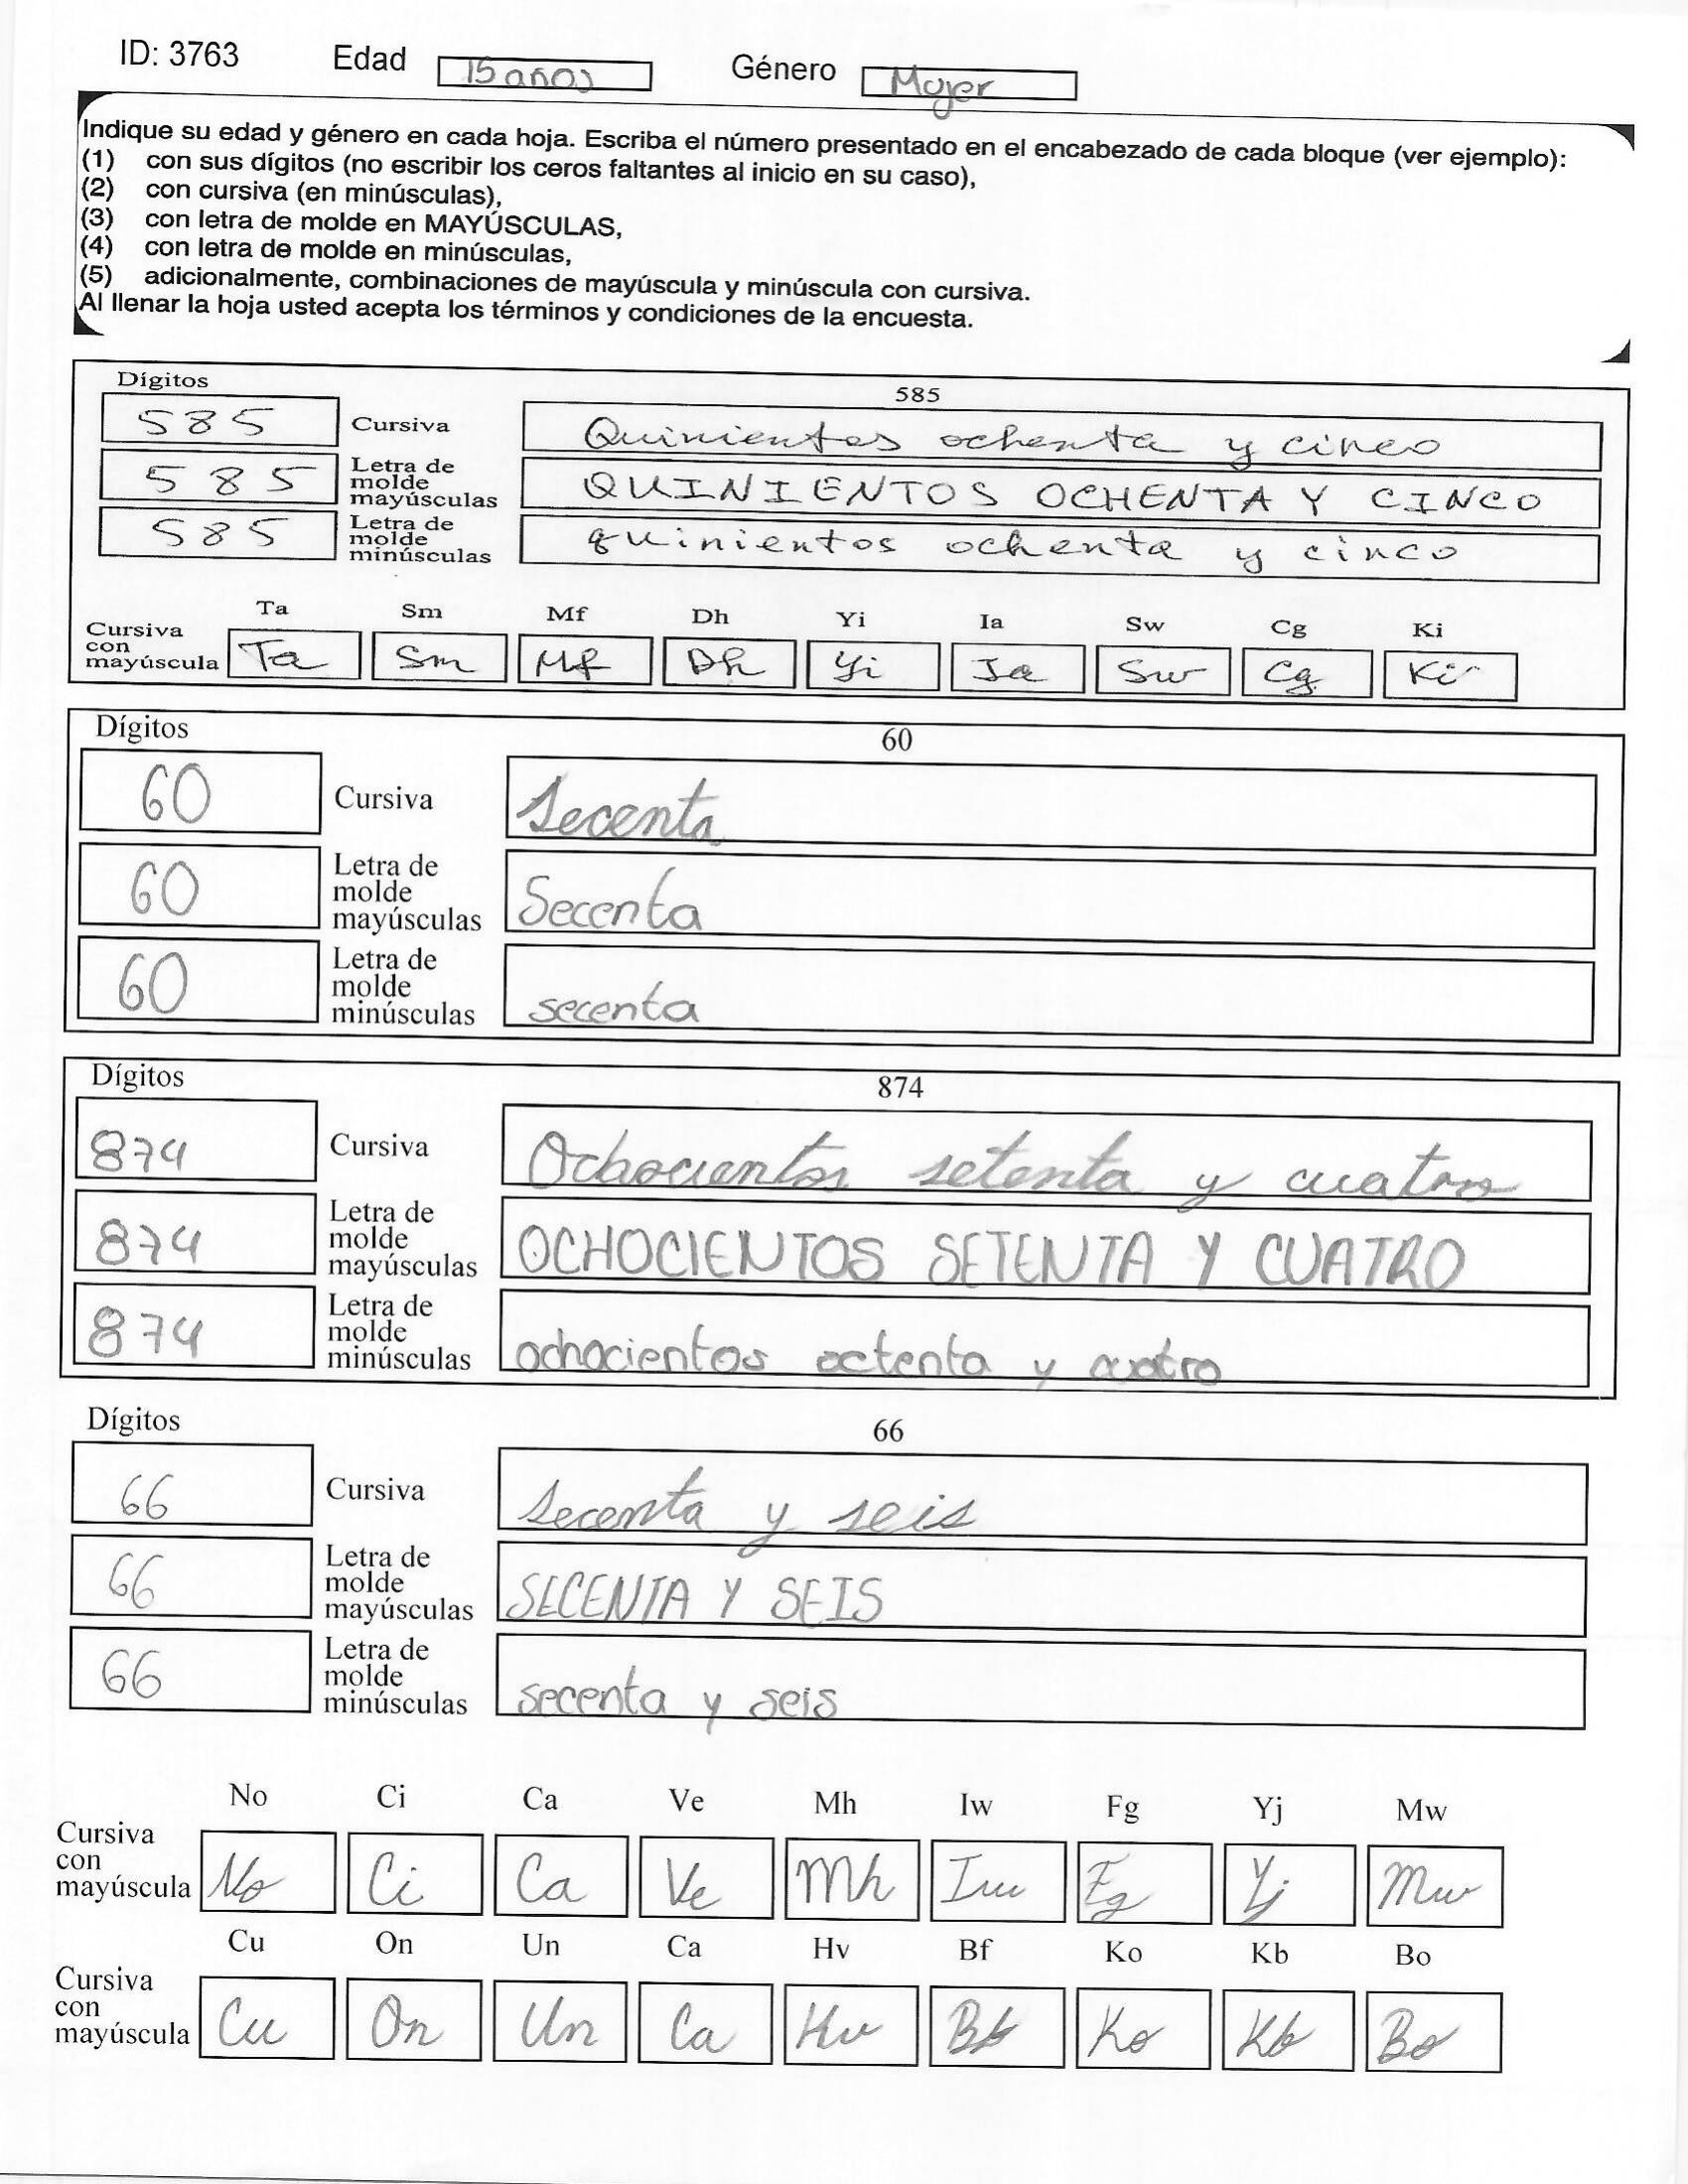 ID: 3763 Edad 15 años Género Mujer
Indique su edad y género en cada hoja. Escriba el número presentado en el encabezado de cada bloque (ver ejemplo):
(1) con sus dígitos (no escribir los ceros faltantes al inicio en su caso),
(2) con cursiva (en minúsculas),
(3) con letra de molde en MAYÚSCULAS,
(4) con letra de molde en minúsculas,
(5) adicionalmente, combinaciones de mayúscula y minúscula con cursiva.
Al llenar la hoja usted acepta los términos y condiciones de la encuesta.
Dígitos 585
585 Cursiva Quinientos ochenta y cinco
585 Letra de molde mayúsculas QUINIENTOS OCHENTA Y CINCO
585 Letra de molde minúsculas quinientos ochenta y cinco
Ta Sm Mf Dh Yi Ia Sw Cg Ki
Cursiva con mayúscula Ta Sm Mf Dh Yi Ia Sw Cg Ki
Dígitos 60
60 Cursiva Secenta
60 Letra de molde mayúsculas Secenta
60 Letra de molde minúsculas secenta
Dígitos 874
874 Cursiva Ochocientos setenta y cuatro
874 Letra de molde mayúsculas OCHOCIENTOS SETENTA Y CUATRO
874 Letra de molde minúsculas ochocientos setenta y cuatro
Dígitos 66
66 Cursiva Secenta y seis
66 Letra de molde mayúsculas SECENTA Y SEIS
66 Letra de molde minúsculas secenta y seis
No Ci Ca Ve Mh Iw Fg Yj Mw
Cursiva con mayúscula No Ci Ca Ve Mh Iw Fg Yj Mw
Cu On Un Ca Hv Bf Ko Kb Bo
Cursiva con mayúscula Cu On Un Ca Hv Bf Ko Kb Bo